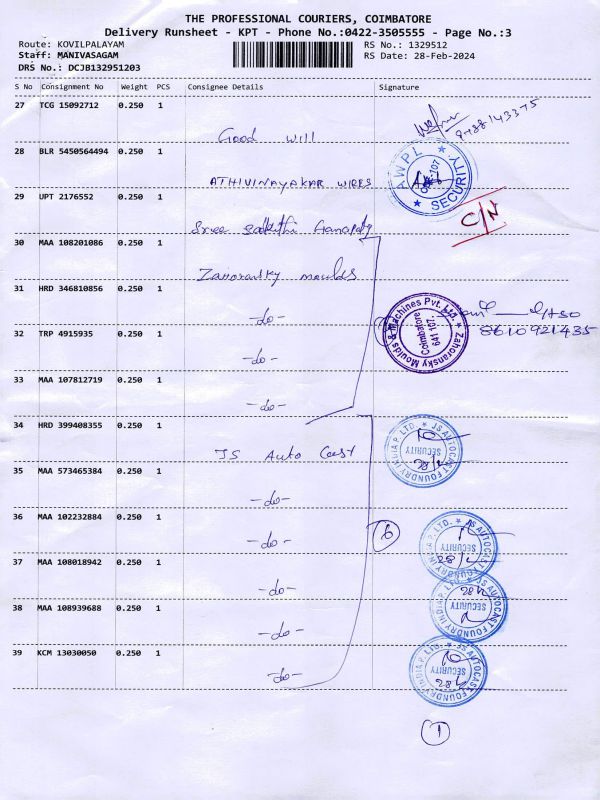 THE PROFESSIONAL COURIERS, COIMBATORE
Delivery Runsheet - KPT - Phone No.:0422-3505555 - Page No.:3
Route: KOVILPALAYAM
RS No.: 1329512
Staff: MANIVASAGAM
RS Date: 28-Feb-2024
DRS No.: DCJB132951203
S No Consignment No Weight PCS Consignee Details Signature
27 TCG 15092712 0.250 1
Good will
9788143375
28 BLR 5450564494 0.250 1
ATHIVINAYAKAR WIRES
AWPL ★ SECURITY ★
29 UPT 2176552 0.250 1
Sree Sakthi Ganapathy
C/N
30 MAA 108201086 0.250 1
Zahoransky moulds
31 HRD 346810856 0.250 1
-do-
8610921435
Zahoransky Moulds & Machines Pvt. Ltd. ★
Coimbatore
641 107
32 TRP 4915935 0.250 1
-do-
33 MAA 107812719 0.250 1
-do-
34 HRD 399408355 0.250 1
JS Auto Cast
JS AUTOCAST FOUNDRY INDIA P. LTD. ★
SECURITY
28/2
35 MAA 573465384 0.250 1
-do-
36 MAA 102232884 0.250 1
-do-
6
JS AUTOCAST FOUNDRY INDIA P. LTD. ★
SECURITY
28/2
37 MAA 108018942 0.250 1
-do-
38 MAA 108939688 0.250 1
-do-
JS AUTOCAST FOUNDRY INDIA P. LTD. ★
SECURITY
28/2
39 KCM 13030050 0.250 1
-do-
JS AUTOCAST FOUNDRY INDIA P. LTD. ★
SECURITY
28/2
1